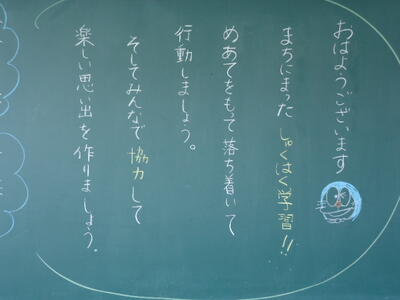 おはようございます
まちにまった しゅくはく学習!!
めあてをもって落ち着いて
行動しましょう。
そしてみんなで協力して
楽しい思い出を作りましょう。